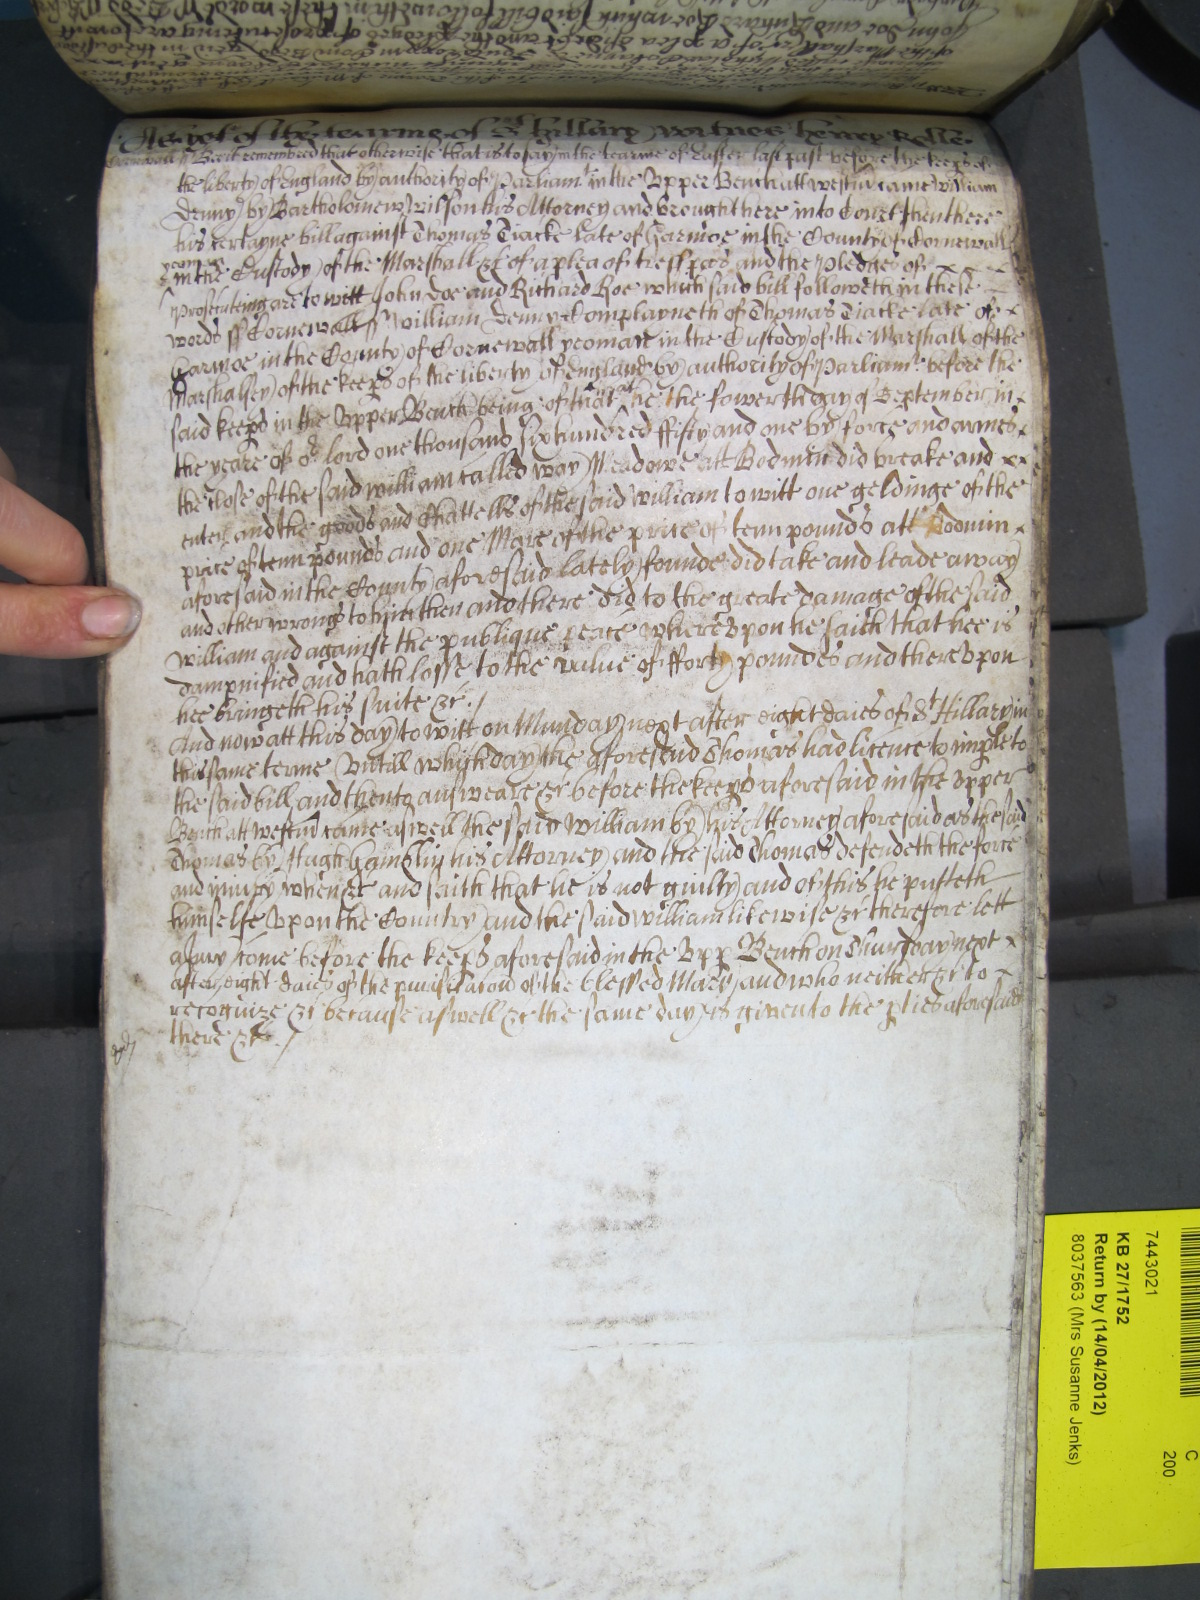 As yet of the tearme of St Hillary Witnes Henry Rolle.
Cornewall ss Bee it remembred that otherwise that is to say in the tearme of Easter last past before the keeps of
the liberty of England by authority of Parliamt in the Upper Bench att Westmr came William
Denny by Bartholomew Wilson his Attorney and brought here into Court then there
his certayne bill against Thomas Tiacke late of Garmoe in the County of Cornewall
yeoman
in the Custody of the Marshall &c of a plea of tresspas and the pledges of
prosecuting are to witt John Doe and Richard Roe which said bill followeth in these
words ss Cornewall ss William Denny Complayneth of Thomas Tiacke late of
Garmoe in the County of Cornewall yeoman in the Custody of the Marshall of the
Marshalsey of the keeps of the liberty of England by authority of Parliamt before the
said keeps in the Upper Bench being of that that he the fowerth day of September in
the yeare of or lord one thousand six hundred fifty and one by force and armes
the close of the said William called Way Meadowe att Bodmin did breake and
enter and the goods and Chattells of the said William to witt one geldinge of the
price of tenn pounds and one Mare of the price of tenn pounds att Bodmin
aforesaid in the County aforesaid lately founde did take and leade away
and other wrongs to him then and there did to the great damage of the said
William and against the publique peace whereupon he saith that hee is
dampnified and hath losse to the value of fforty poundes and thereupon
hee bringeth his suite &c. /
And now att this day to witt on Munday next after eight daies of St Hillary in
this same terme Untill which day the aforesaid Thomas had licence to imple to
the said bill and then to answeare &c before the keeps aforesaid in the Upper
Bench att Westmr came aswell the said William by his Attorney aforesaid as the said
Thomas by Hugh Gamblin his Attorney and the said Thomas defendeth the force
and iniury when &c and saith that he is not guilty and of this he putteth
himselfe Upon the Country and the said William likewise &c therefore lett
a Jury come before the keeps aforesaid in the Upp Bench on Thursday next
after eight daies of the purificacon of the blessed Mary and who neither &c to
recognize &c because aswell &c the same day is given to the pties aforesaid
there &c. /
7443021
KB 27/1752
Return by (14/04/2012)
8037563 (Mrs Susanne Jenks)
C
200